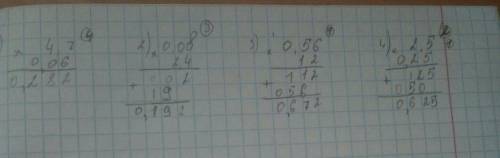 ) 4,7 ④
0,06
0,282
2) 0,08 ③
24
+ 32
19
0,192
3) 0,56 ①
12
+ 112
056
0,672
4) 2,5
0,25
+ 125
050
0,625